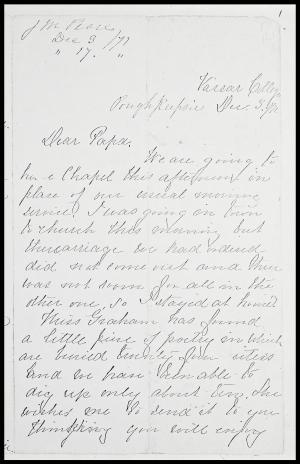 J M Pease
Dec 3 /71
" 17. "
1
Vassar College
Poughkeepsie Dec. 3.
Dear Papa.
We are going to
have Chapel this afternoon in
place of our usual morning
service. I was going on town
to church this morning but
the carriage we had ordered
did not come out and there
was not room for all in the
other one, so I stayed at home.
Miss Graham has found
a little piece of poetry in which
are buried twenty four cities
and we have been able to
dig up only about ten. She
wishes me to send it to you
thinking you will enjoy